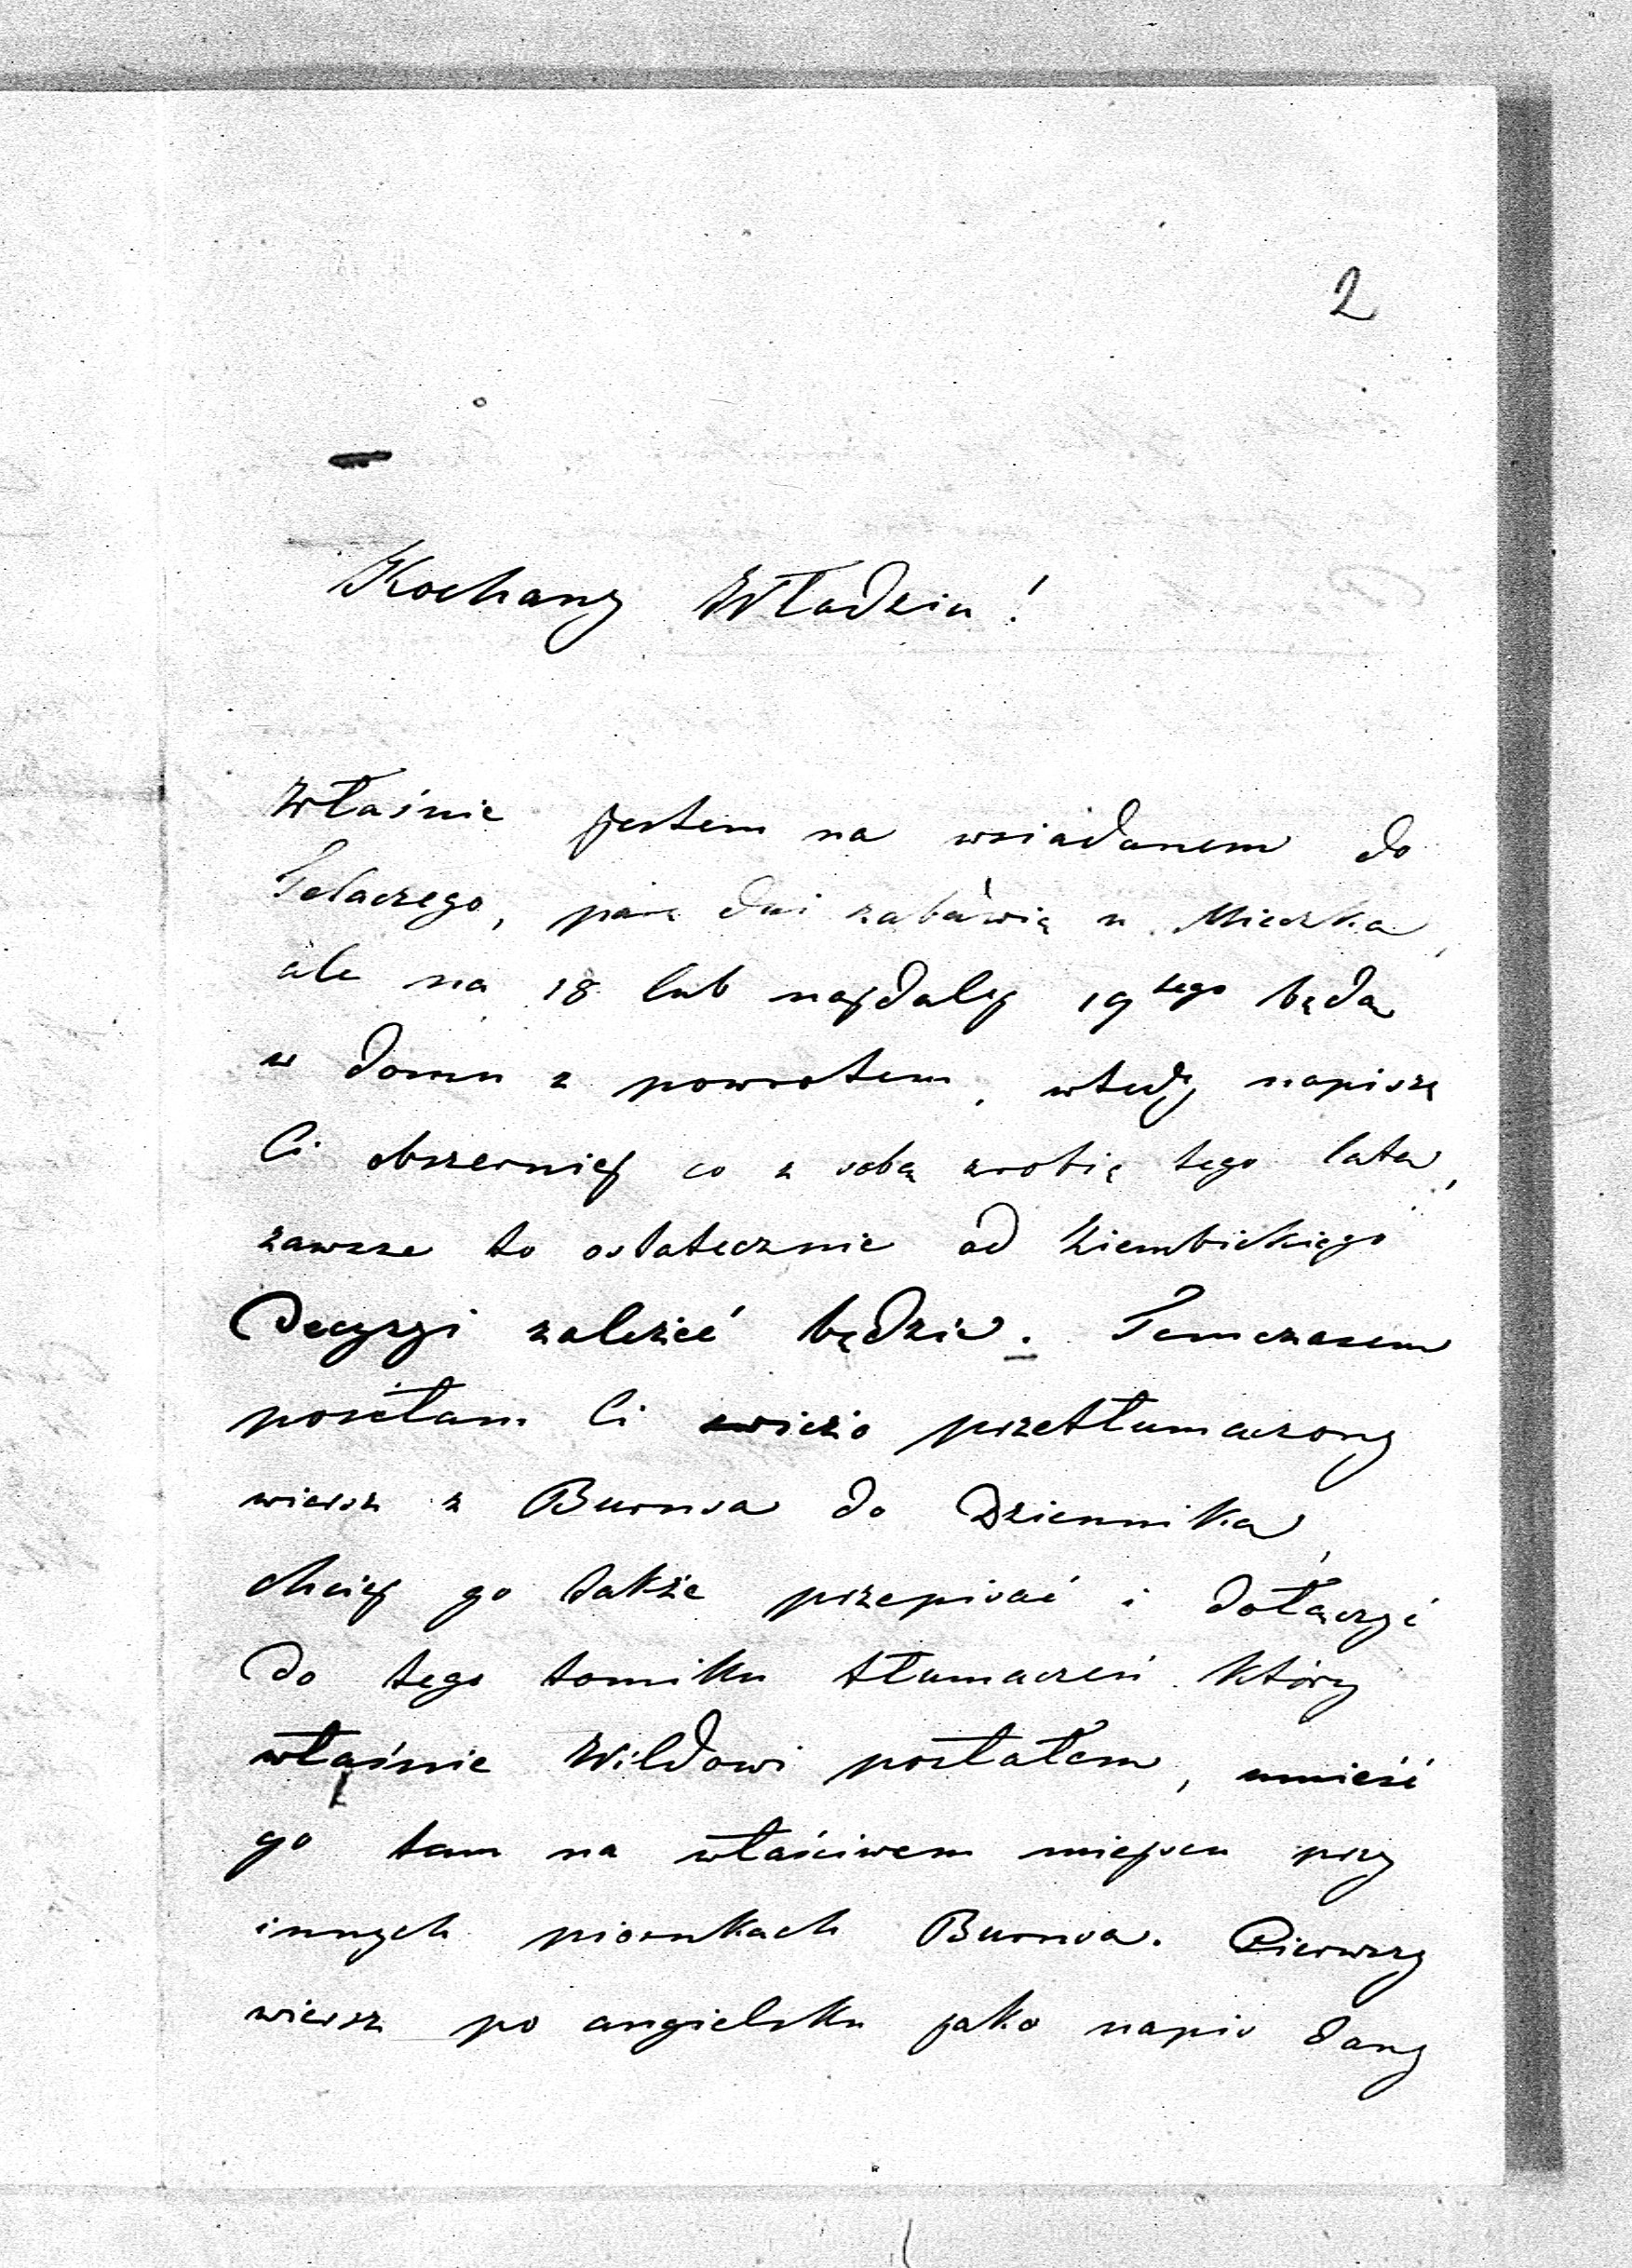 2
Kochany Władziu!
Właśnie jestem na wsiadanem do
Telaczego, parę dni zabawię u Mieczka,
ale na 18 lub najdalej 19tego będę
w domu z powrotem, wtedy napiszę
Ci obszerniej co z sobą zrobię tego lata,
zawsze to ostatecznie od Ziembickiego
Decyzyi zależeć będzie. Temczasem
posełam Ci świeżo przetłumaczony
wiersz z Burnsa do Dziennika,
chciej go także przepisać i dołączyć
do tego tomiku tłumaczeń który
właśnie Wildowi posłałem, umieść
go tam na właściwem miejscu przy
innych piosnkach Burnsa. Pierwszy
wiersz po angielsku jako napis dany